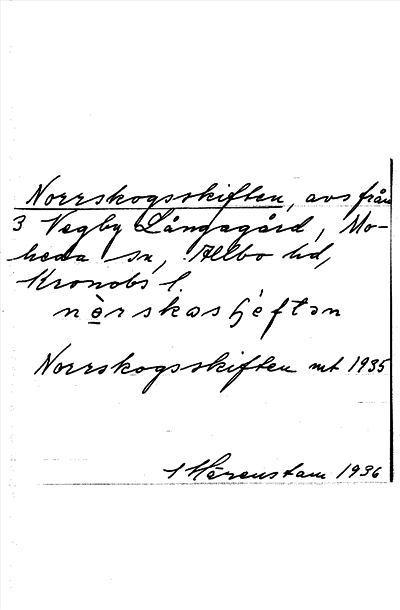 Norrskogsskiften, avs från
3 Vegby Långagård, Mo-
heda sn, Allbo hd,
Kronobs l.
nèrskasʃèftən
Norrskogsskiften mt 1935
1936